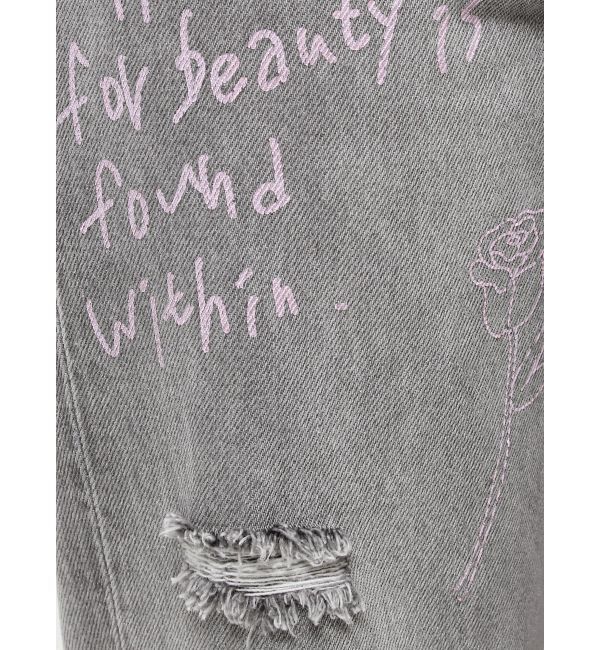 for beauty is
found
within.